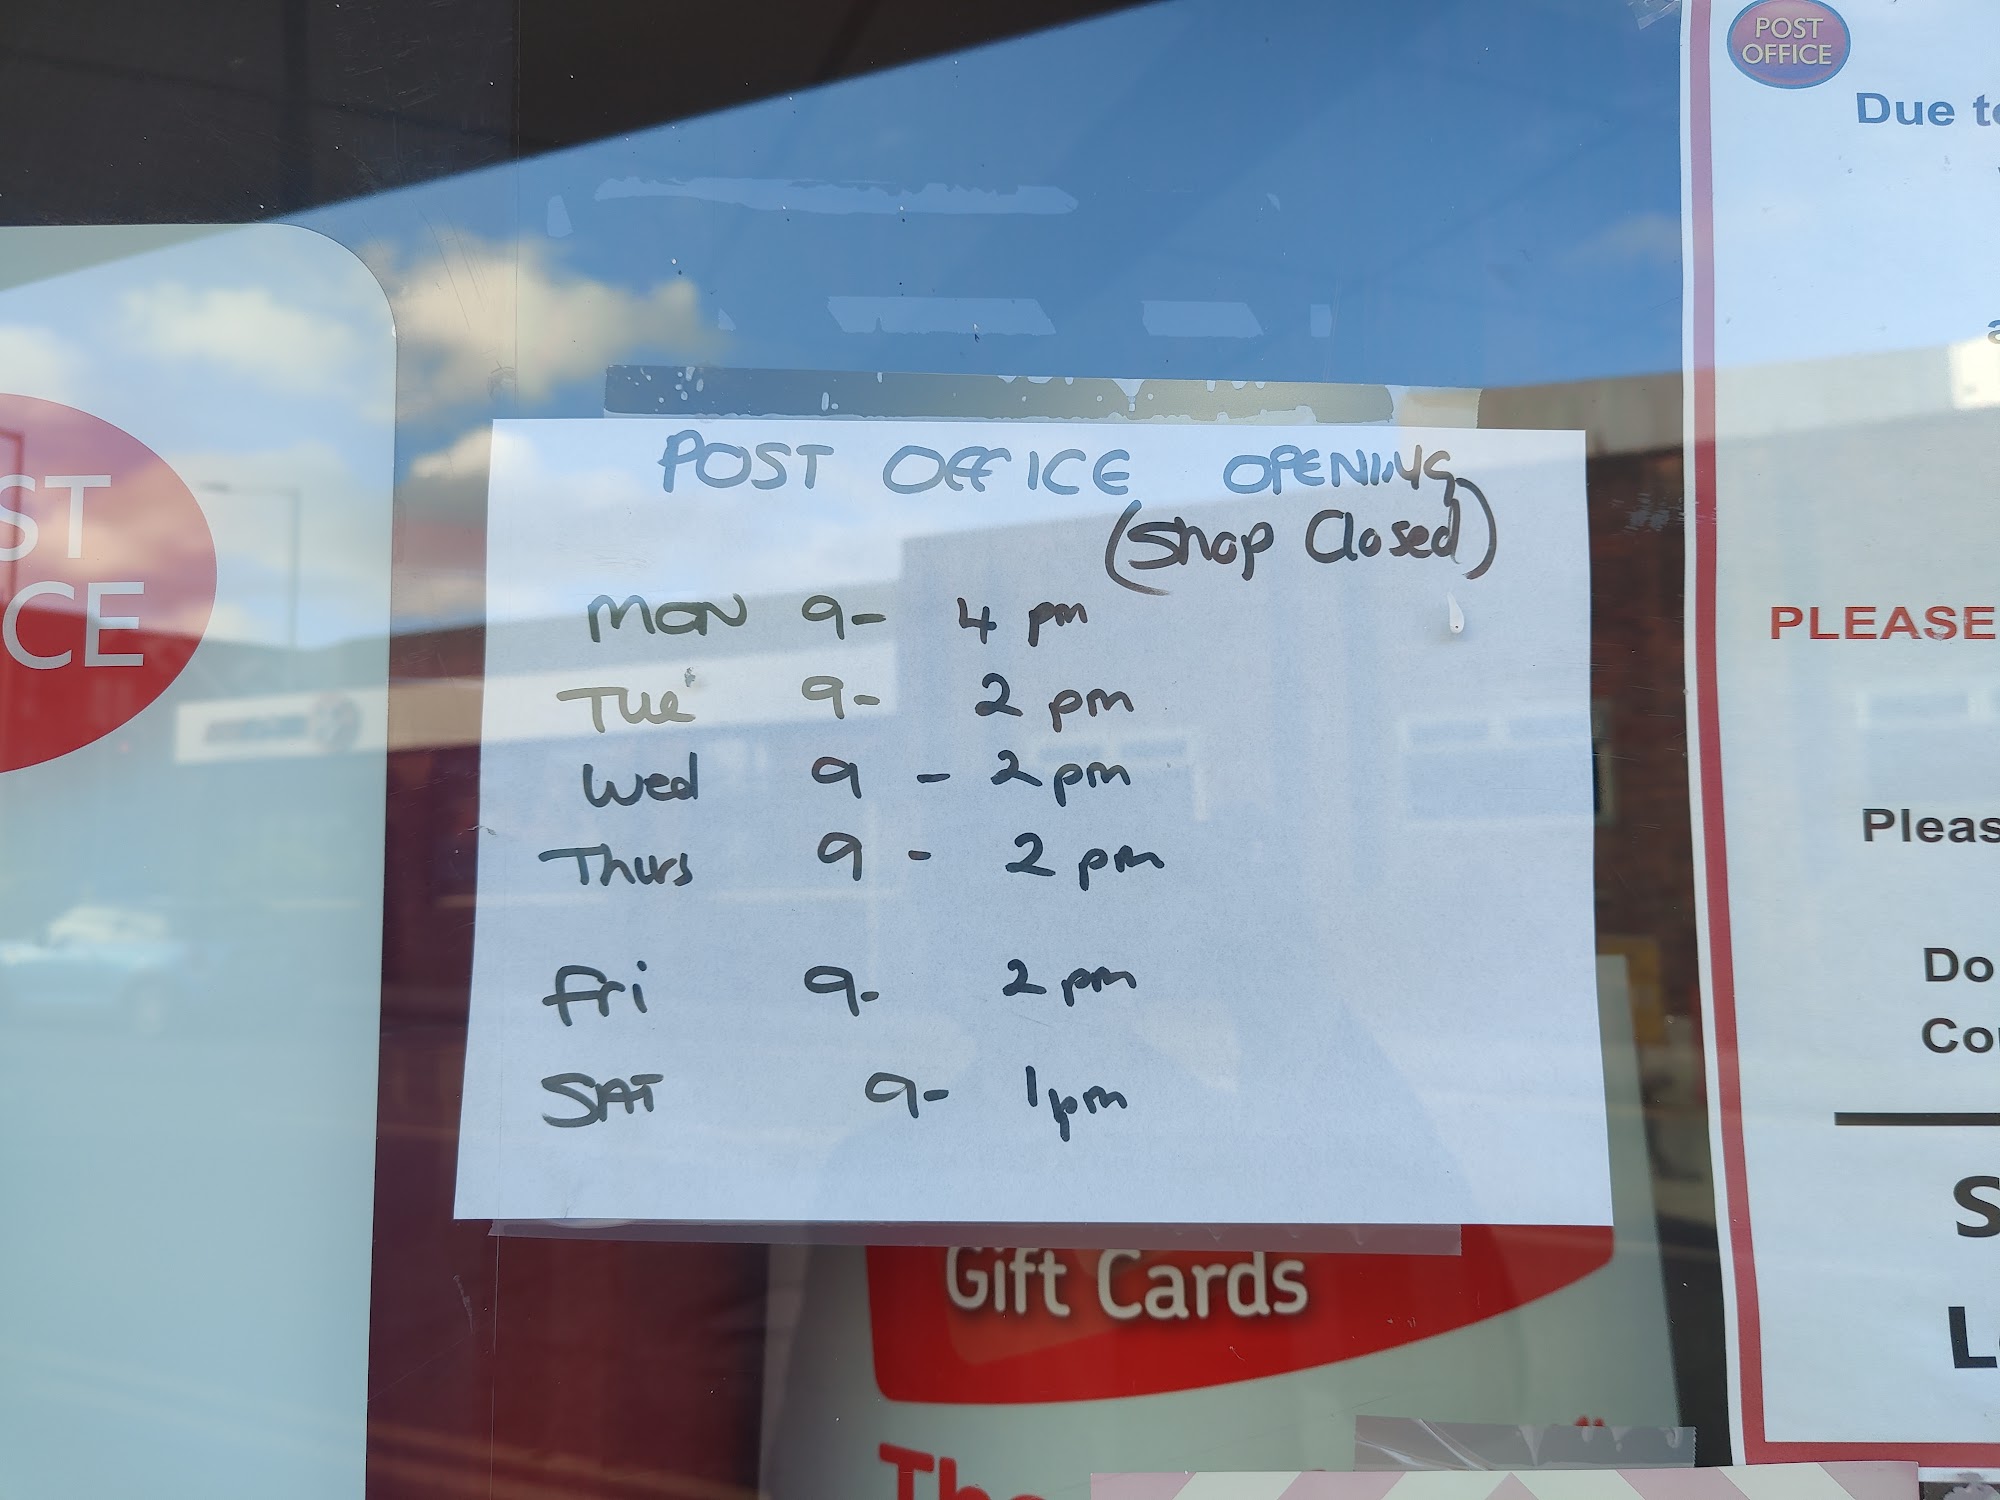 POST OFFICE OPENING
(Shop Closed)
MON 9- 4 pm
Tue 9- 2 pm
Wed 9 - 2pm
Thurs 9 - 2 pm
Fri 9- 2 pm
SAT 9- 1pm
ST
CE
Gift Cards
The
POST
OFFICE
Due to
PLEASE
Pleas
Do
Co
S
L